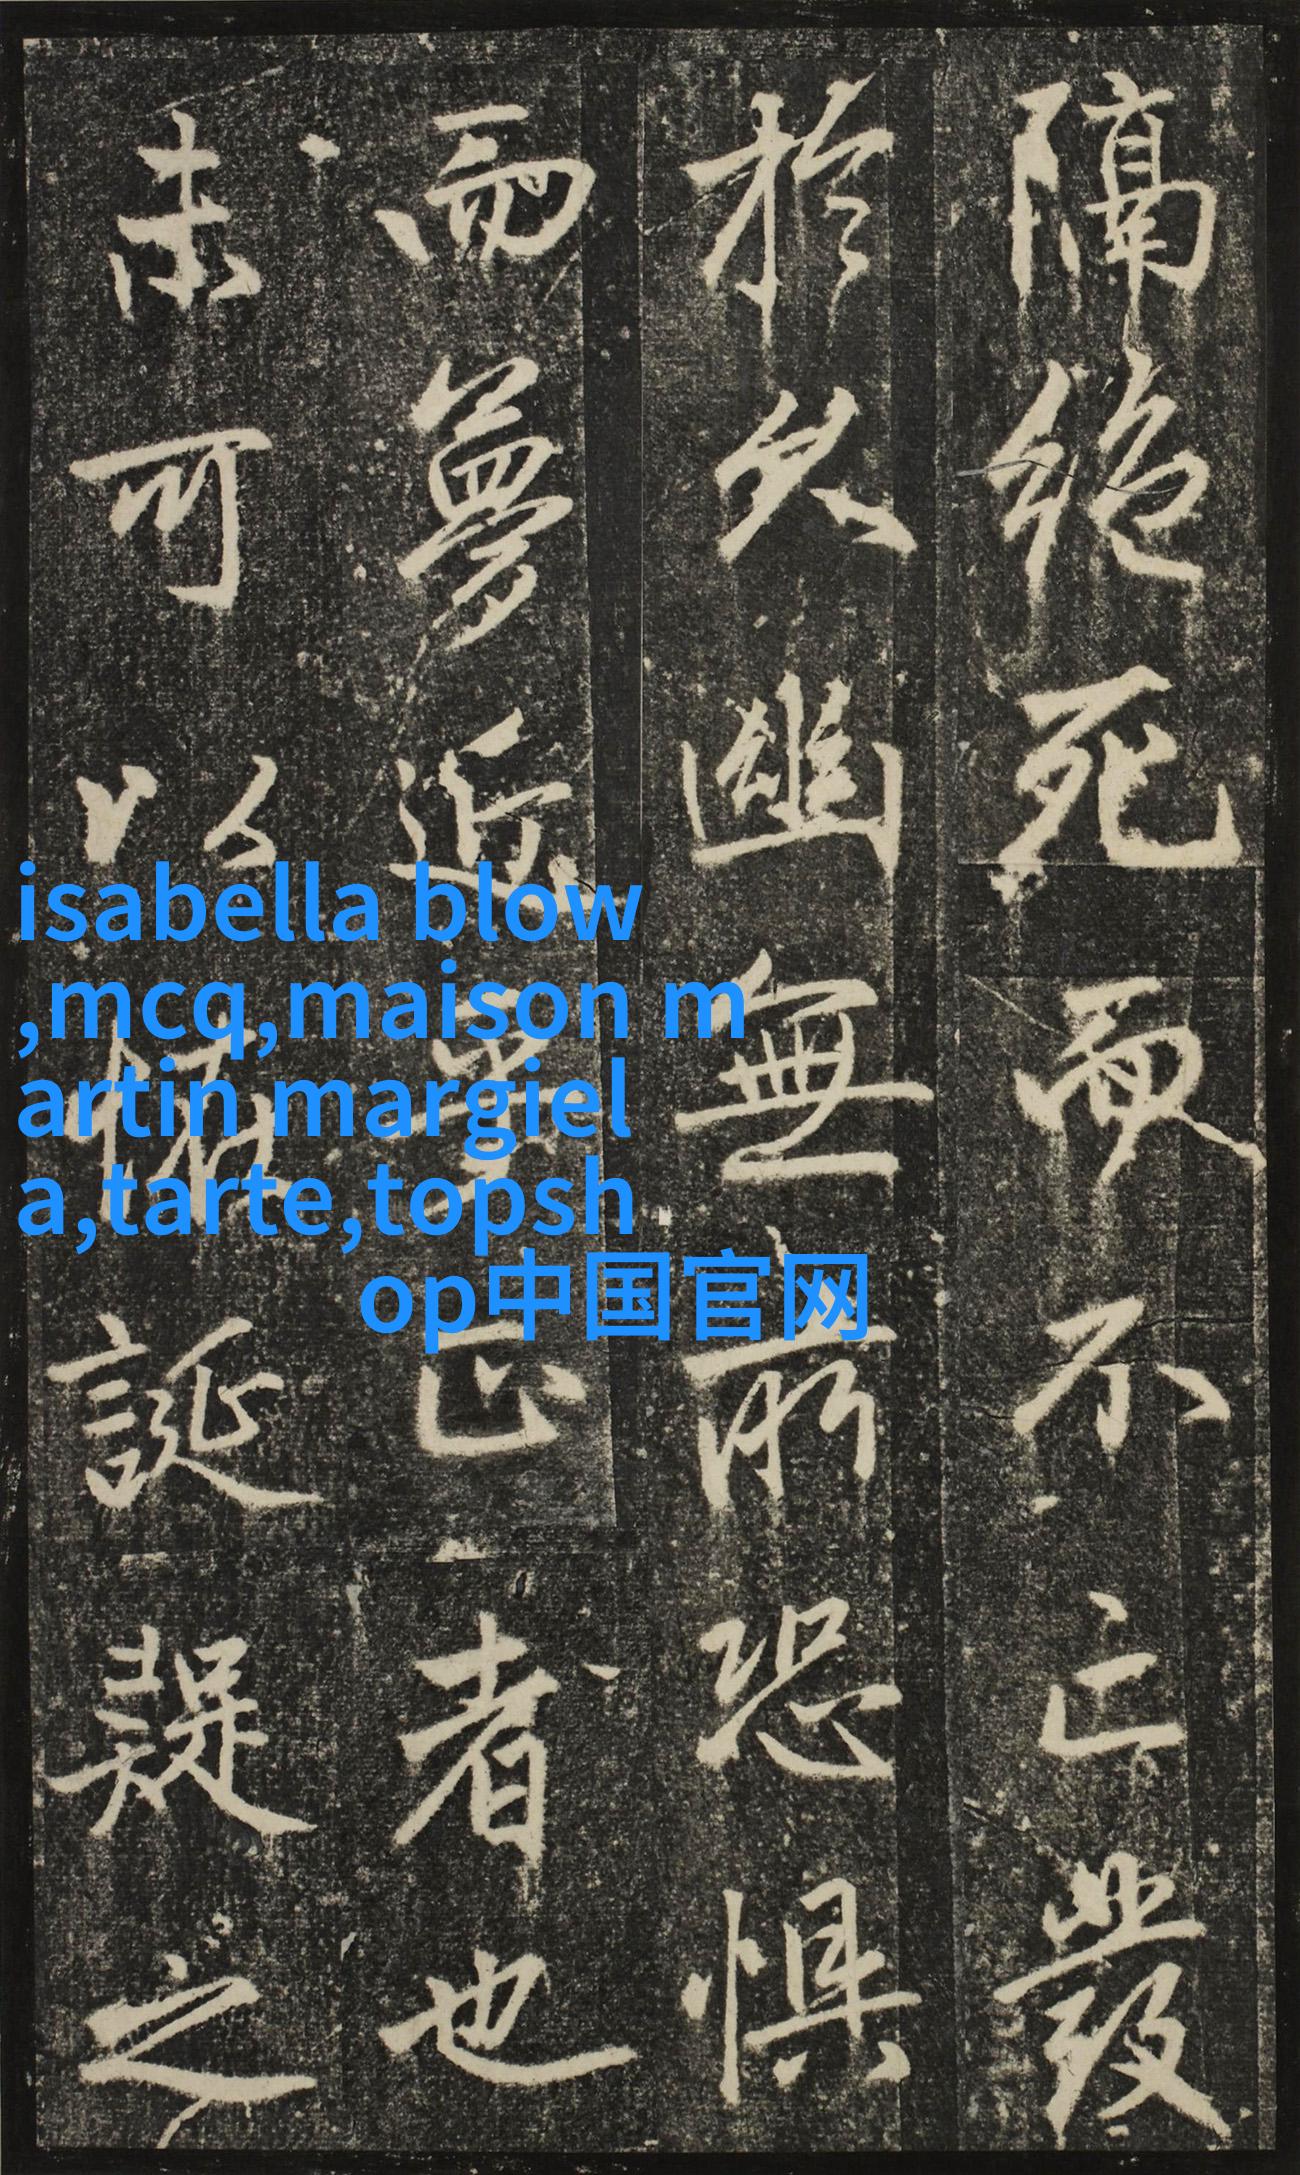 隔絶死而不亡發
於久幽無所恐懼
而夢近正者也
未可以誕疑之
isabella blow
,mcq,maison m
artin margiel
a,tarte,topsh
op中国官网